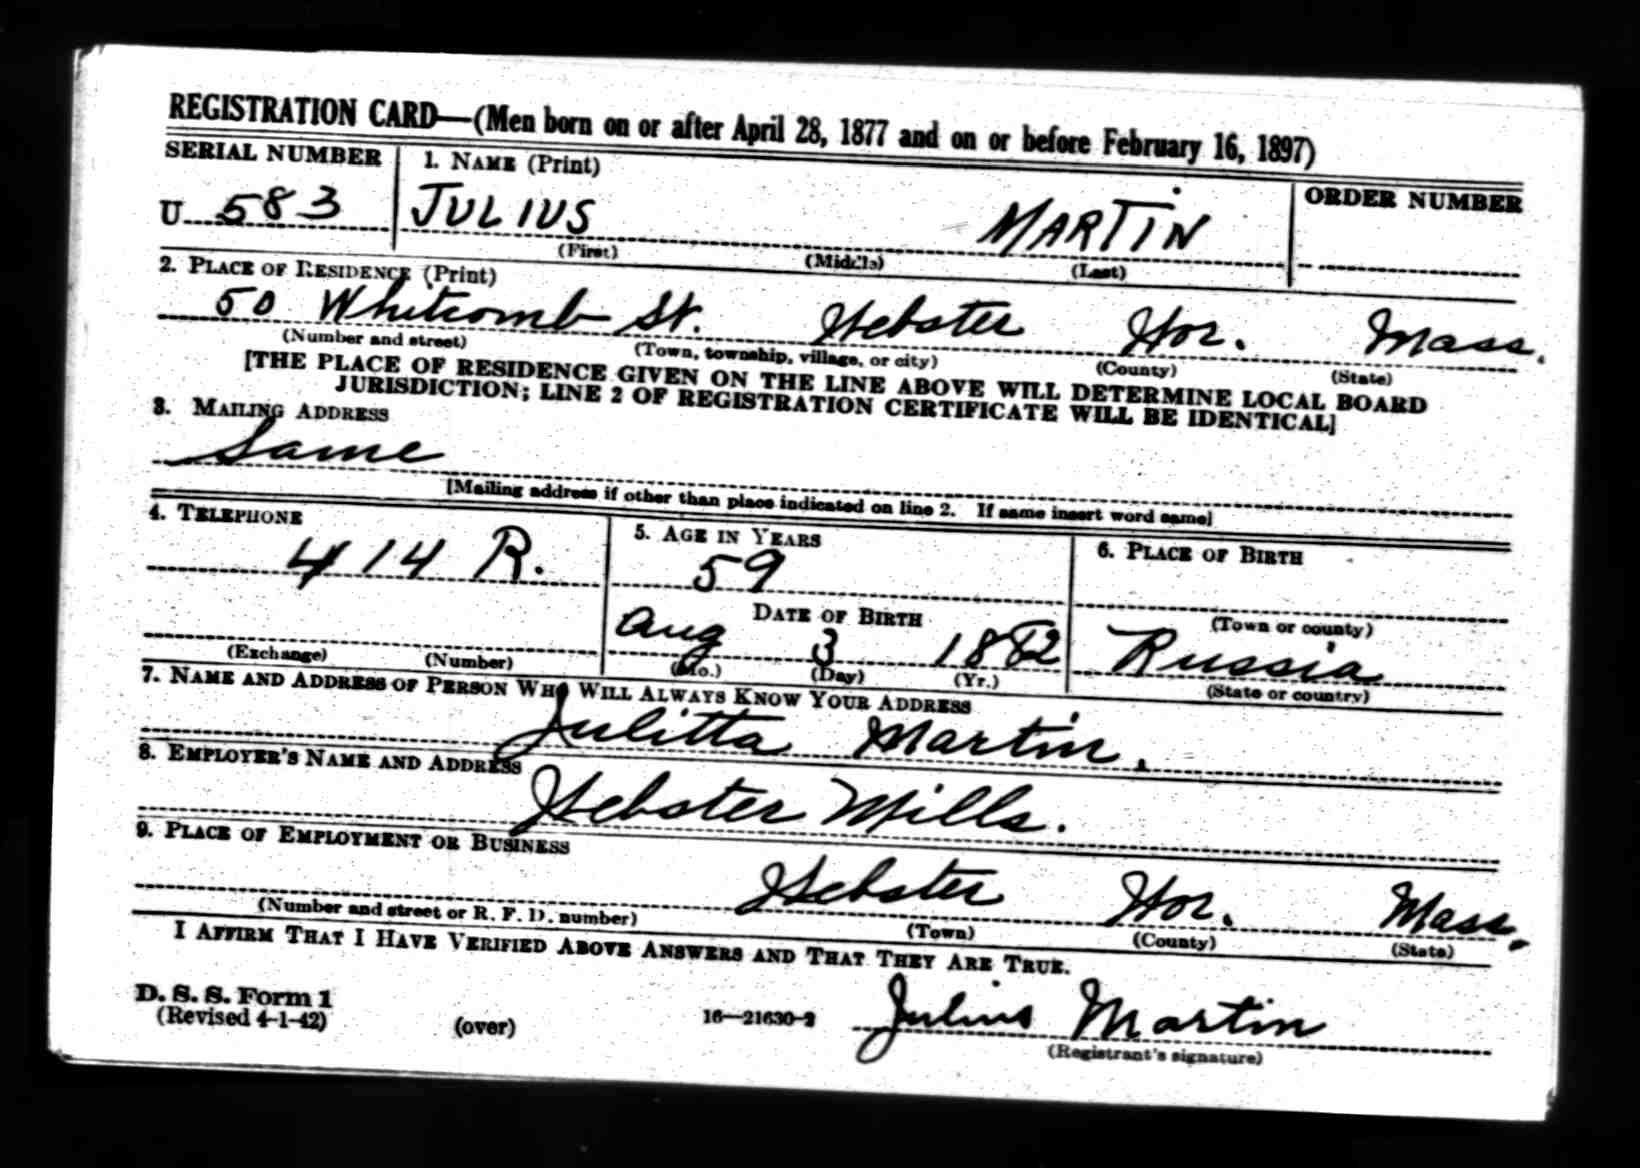 REGISTRATION CARD—(Men born on or after April 28, 1877 and on or before February 16, 1897)
SERIAL NUMBER 1. NAME (Print) ORDER NUMBER
U 583 JULIUS MARTIN
(First) (Middle) (Last)
2. PLACE OF RESIDENCE (Print)
50 Whitcomb St. Webster Wor. Mass.
(Number and street) (Town, township, village, or city) (County) (State)
[THE PLACE OF RESIDENCE GIVEN ON THE LINE ABOVE WILL DETERMINE LOCAL BOARD
JURISDICTION; LINE 2 OF REGISTRATION CERTIFICATE WILL BE IDENTICAL]
3. MAILING ADDRESS
Same
[Mailing address if other than place indicated on line 2. If same insert word same]
4. TELEPHONE 5. AGE IN YEARS 6. PLACE OF BIRTH
414 R. 59
DATE OF BIRTH (Town or county)
Aug 3 1882 Russia
(Exchange) (Number) (Mo.) (Day) (Yr.) (State or country)
7. NAME AND ADDRESS OF PERSON WHO WILL ALWAYS KNOW YOUR ADDRESS
Julitta Martin.
8. EMPLOYER'S NAME AND ADDRESS
Webster Mills.
9. PLACE OF EMPLOYMENT OR BUSINESS
Webster Wor. Mass.
(Number and street or R. F. D. number) (Town) (County) (State)
I AFFIRM THAT I HAVE VERIFIED ABOVE ANSWERS AND THAT THEY ARE TRUE.
D. S. S. Form 1
(Revised 4-1-42) (over) 16—21630-2 Julius Martin
(Registrant's signature)